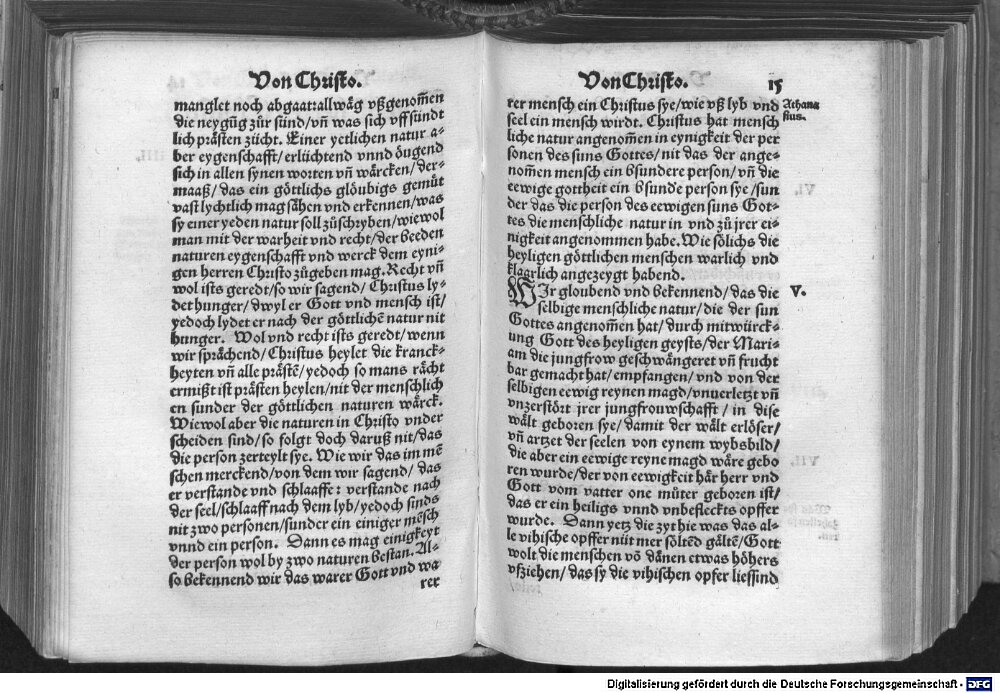 Von Christo.
manglet noch abgaat: allwäg vßgenom̃en
die neygũg zůr sünd/vñ was sich vff sündt
lich prästen zücht. Einer yetlichen natur a-
ber eygenschafft/erlüchtend vnnd öugend
sich in allen synen worten vñ wärcken/der-
maaß/das ein göttlichs glöubigs gemüt
vast lychtlich mag sähen vnd erkennen/was
sy einer yeden natur soll zůschryben/wiewol
man mit der warheit vnd recht/der beeden
naturen eygenschafft vnd werck dem eyni-
gen herren Christo zůgeben mag. Recht vñ
wol ists geredt/so wir sagend/Christus ly-
det hunger/dwyl er Gott vnd mensch ist/
yedoch lydet er nach der göttlichẽ natur nit
hunger. Wol vnd recht ists geredt/wenn
wir sprächend/Christus heylet die kranck-
heyten vñ alle prästẽ/yedoch so mans rächt
ermißt ist prästen heylen/nit der menschlich
en sunder der göttlichen naturen wärck.
Wiewol aber die naturen in Christo vnder
scheiden sind/so folgt doch daruß nit/das
die person zerteylt sye. Wie wir das im mẽ
schen merckend/von dem wir sagend/das
er verstande vnd schlaaffe: verstande nach
der seel/schlaaff nach dem lyb/yedoch sinds
nit zwo personen/sunder ein einiger mẽsch
vnnd ein person. Dann es mag einigkeyt
der person wol by zwo naturen bestan. Al-
so bekennend wir das warer Gott vnd wa
rer
Von Christo. 15
rer mensch ein Christus sye/wie vß lyb vnd
seel ein mensch wirdt. Christus hat mensch
liche natur angenom̃en in eynigkeit der per
sonen des suns Gottes/nit das der ange-
nom̃en mensch ein bsundere person/vñ die
eewige gottheit ein bsundʼe person sye/sun
der das die person des eewigen suns Got-
tes die menschliche natur in vnd zů jrer ei-
nigkeit angenommen habe. Wie sölichs die
heyligen göttlichen menschen warlich vnd
klaarlich angezeygt habend.
Athana
sius.
WIr gloubend vnd bekennend/das die
selbige menschliche natur/die der sun
Gottes angenom̃en hat/durch mitwürck-
ung Gott des heyligen geysts/der Mari-
am die jungfrow geschwängeret vñ frucht
bar gemacht hat/empfangen/vnd von der
selbigen eewig reynen magd/vnuerletzt vñ
vnzerstört jrer jungfrouwschafft/in dise
wält geboren sye/damit der wält erlöser/
vñ artzet der seelen von eynem wybsbild/
die aber ein eewige reyne magd wäre gebo
ren wurde/der von eewigkeit här herr vnd
Gott vom vatter one můter geboren ist/
das er ein heiligs vnnd vnbefleckts opffer
wurde. Dann yetz die zyt hie was das al-
le vihische opffer nüt mer söltẽd gältẽ/Gott
wolt die menschen võ dänen etwas höhers
vfziehen/das sy die vihischen opfer liessind
V.
Digitalisierung gefördert durch die Deutsche Forschungsgemeinschaft - DFG